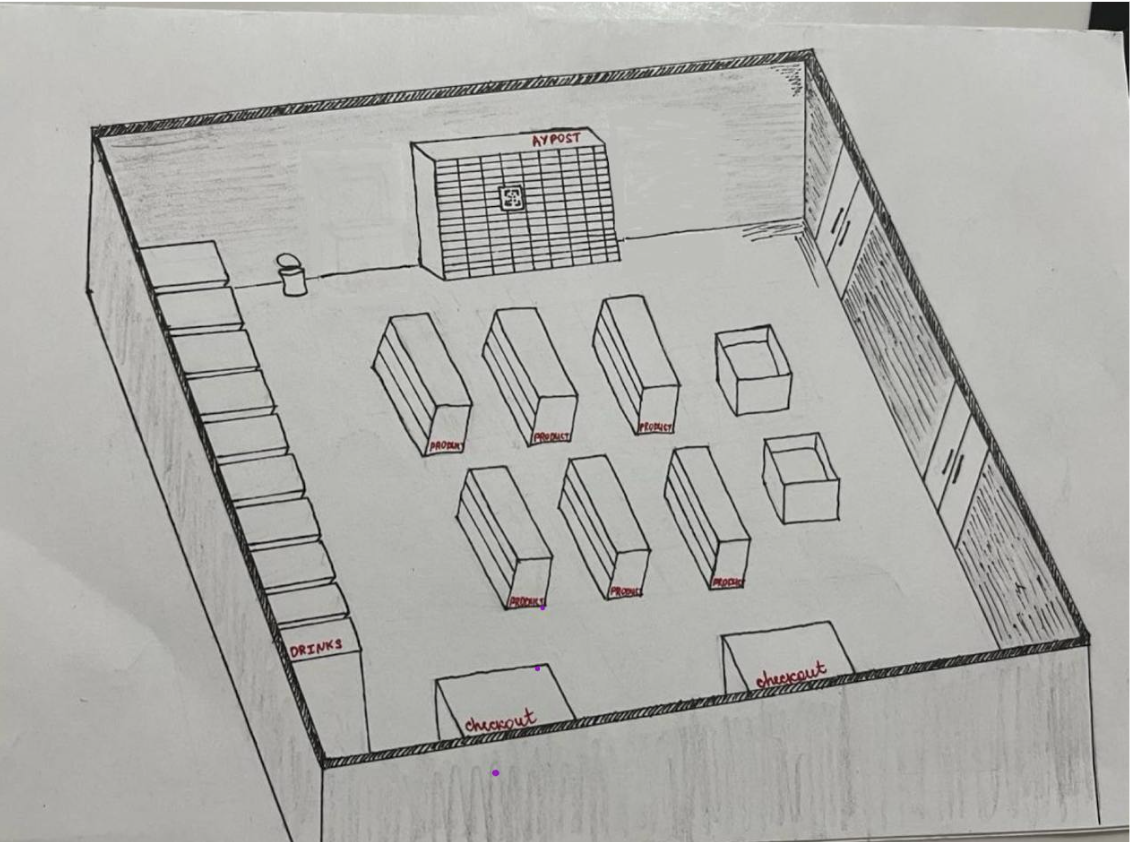 AYPOST
PRODUCT
PRODUCT
PRODUCT
PRODUCT
PRODUCT
PRODUCT
DRINKS
checkout
checkout